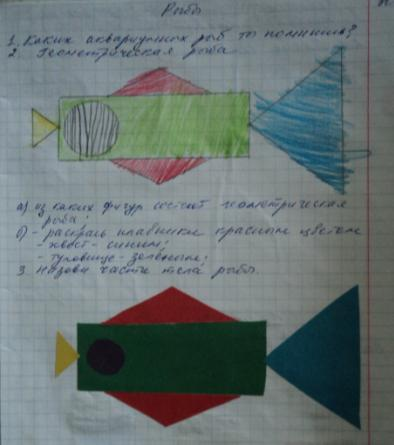 Рыбы
1. Каких аквариумных рыб ты помнишь?
2. Геометрическая рыба.
а) из каких фигур состоит геометрическая
рыба;
б) - раскрась плавники красным цветом
- хвост - синим;
- туловище - зелёным;
3. Назови части тела рыбы.